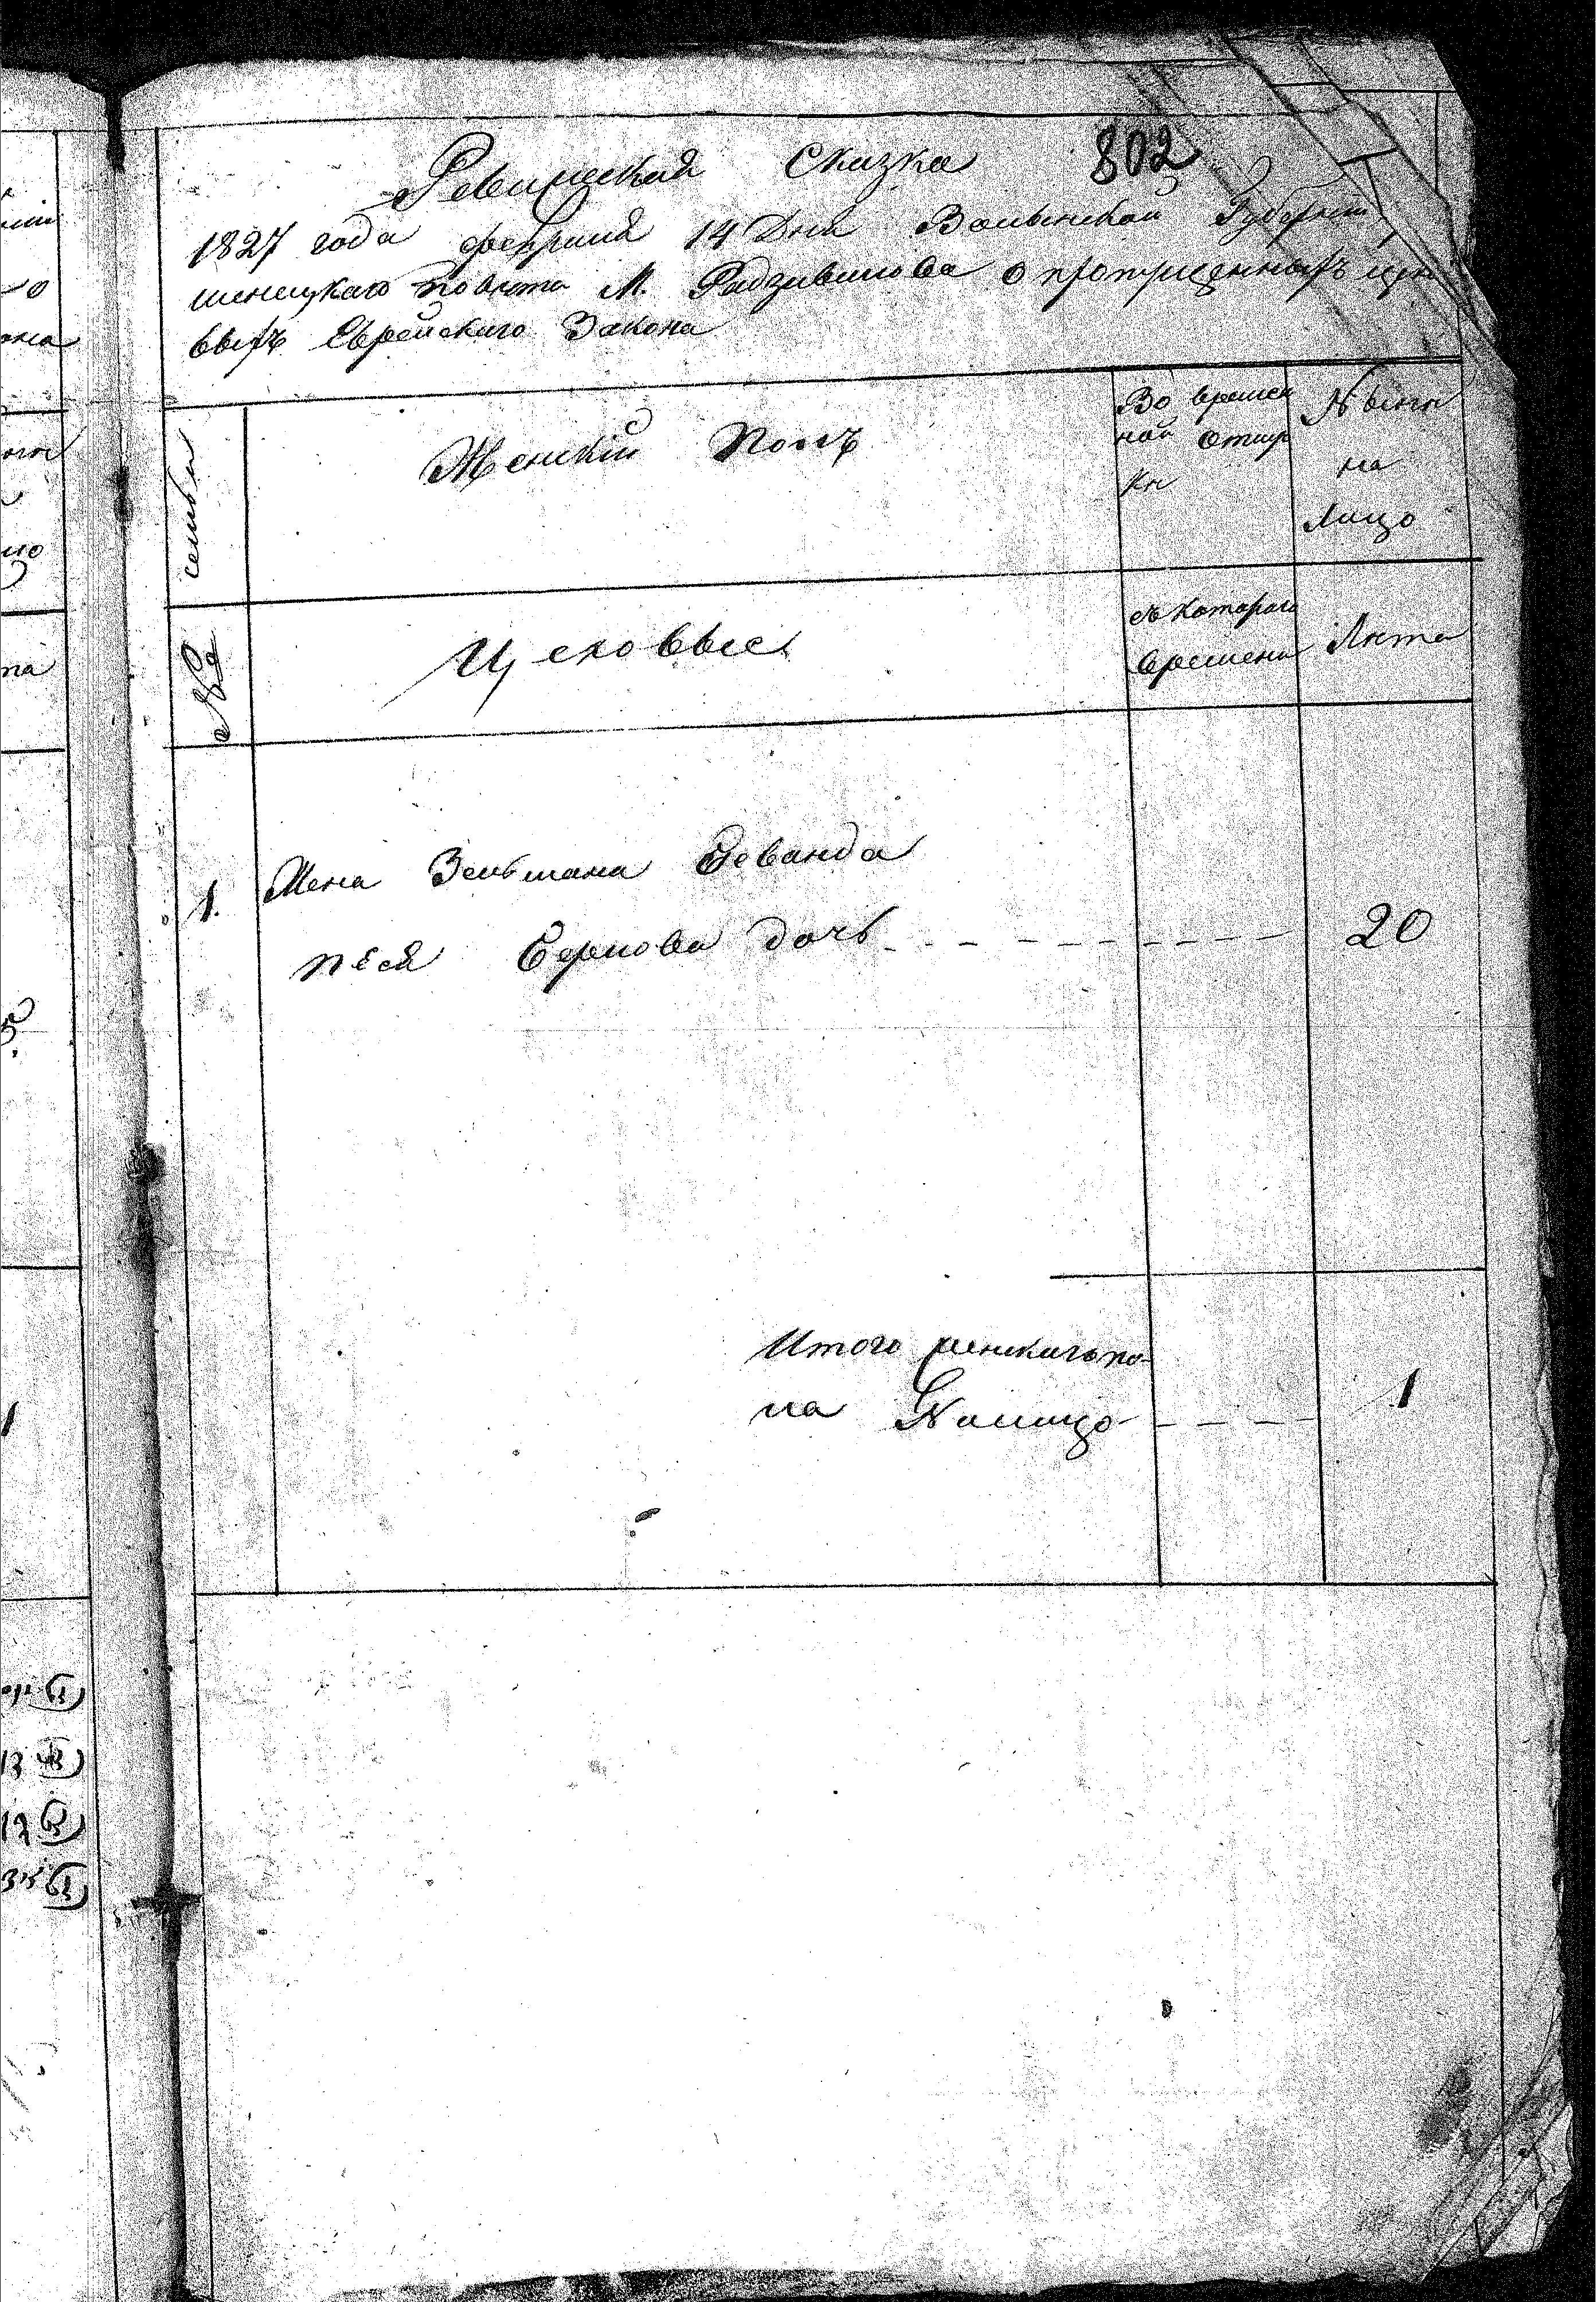 802
Ревизская Сказка
1827 года февраля 14 Дня Волынской Губернии
менецкаго Повета М. Радзивилова о пропущенныхъ цехо
выхъ Еврейскаго Закона
семьи
Женскій Полъ
Во времен
ной отлуч
ке
Ныне
на
Лицо
№
Цеховые
съ котораго
времени
Лета
1.
Жена Зельмана
Песя Беркова дочь
20
Итого женскаго по-
ла Налицо
1